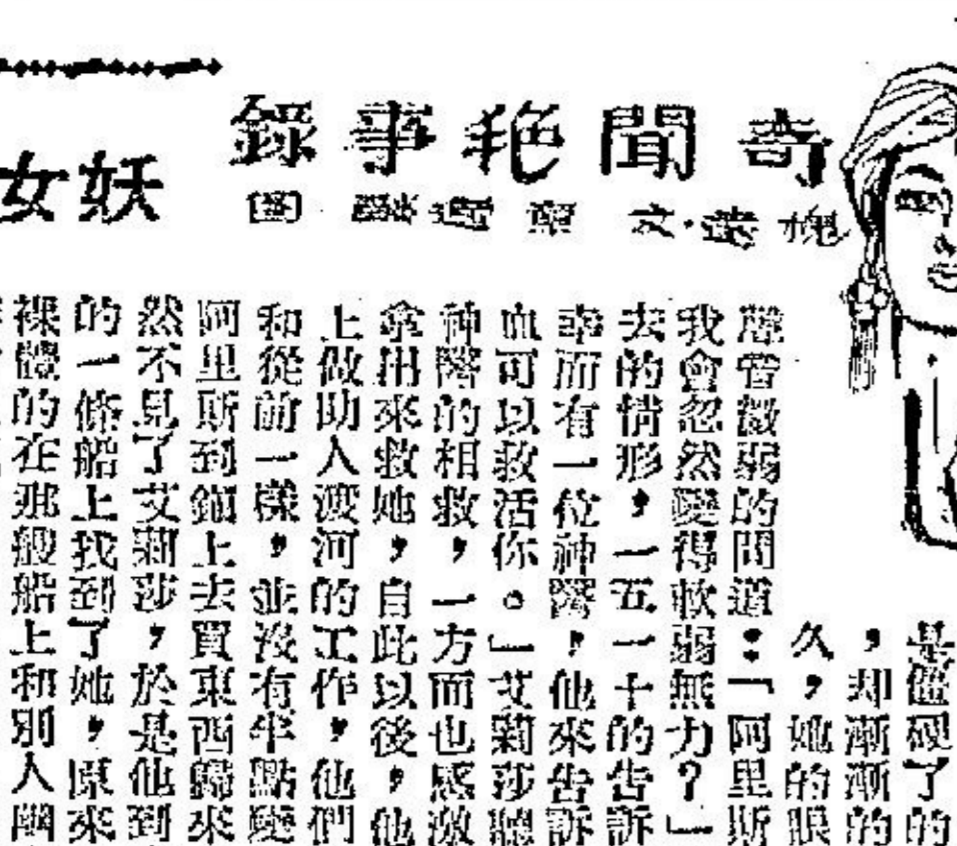 奇聞艳事錄
文
圖
妖女
是僵硬了的
，却漸漸的
久，她的眼
聲音微弱的問道：「阿里斯
我會忽然變得軟弱無力？」
去的情形，一五一十的告訴
幸而有一位神醫，他來告訴
血可以救活你。」艾莉莎聽
神醫的相救，一方面也感激
拿出來救她，自此以後，他
上做助人渡河的工作，他們
和從前一樣，並沒有半點變
阿里斯到鎮上去買東西歸來
然不見了艾莉莎，於是他到
的一條船上找到了她，原來
裸體的在那艘船上和別人幽